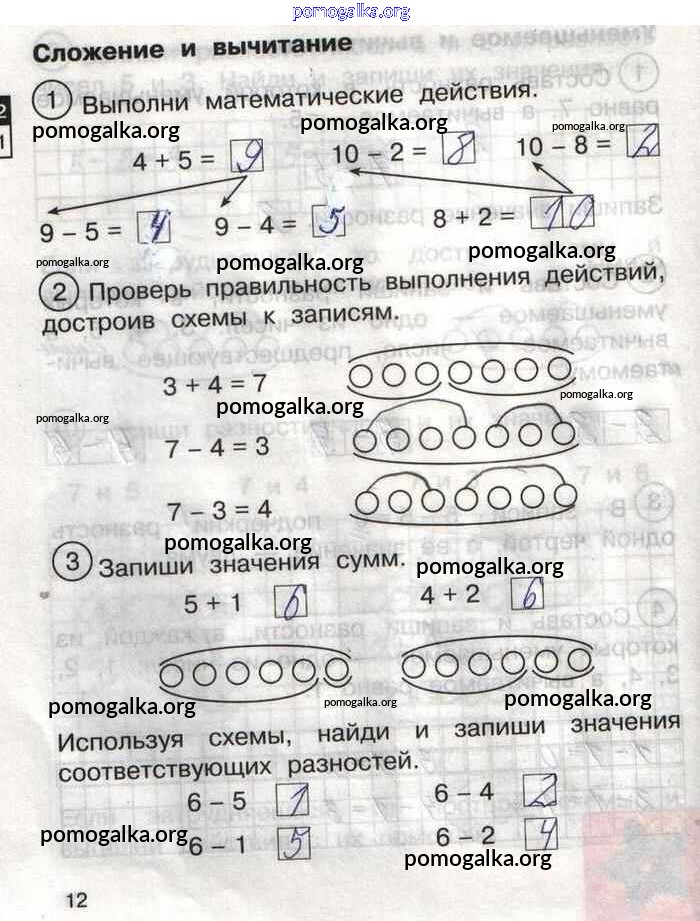 pomogalka.org
Сложение и вычитание
1 Выполни математические действия.
2
1
pomogalka.org pomogalka.org pomogalka.org
4 + 5 = 9 10 − 2 = 8 10 − 8 = 2
9 − 5 = 4 9 − 4 = 5 8 + 2 = 10
pomogalka.org pomogalka.org pomogalka.org
2 Проверь правильность выполнения действий,
достроив схемы к записям.
3 + 4 = 7
pomogalka.org
pomogalka.org pomogalka.org
7 − 4 = 3
7 − 3 = 4
pomogalka.org
3 Запиши значения сумм. pomogalka.org
5 + 1 6 4 + 2 6
pomogalka.org pomogalka.org pomogalka.org
Используя схемы, найди и запиши значения
соответствующих разностей.
6 − 5 1 6 − 4 2
pomogalka.org
6 − 1 5 6 − 2 4
pomogalka.org
12